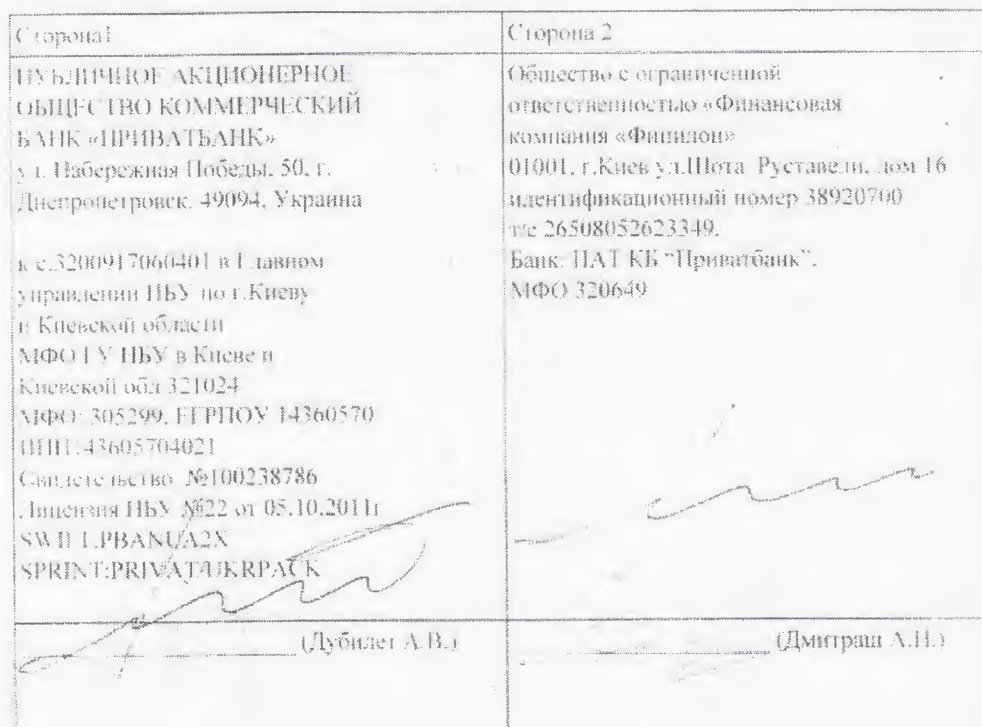 Сторона1
ПУБЛИЧНОЕ АКЦИОНЕРНОЕ
ОБЩЕСТВО КОММЕРЧЕСКИЙ
БАНК «ПРИВАТБАНК»
ул. Набережная Победы, 50, г.
Днепропетровск, 49094, Украина
к/с.3200917060401 в Главном
управлении НБУ по г.Киеву
и Киевской области
МФО ГУ НБУ в Киеве и
Киевской обл 321024
МФО: 305299, ЕГРПОУ 14360570
ИНН:43605704021
Свидетельство №100238786
Лицензия НБУ №22 от 05.10.2011г
SWIFT.PBANUA2X
SPRINT:PRIVAT/UKRPACK
(Дубилет А.В.)
Сторона 2
Общество с ограниченной
ответственностью «Финансовая
компания «Финилон»
01001, г.Киев ул.Шота Руставели, дом 16
идентификационный номер 38920700
т/с 26508052623349,
Банк: ПАТ КБ "Приватбанк",
МФО 320649
(Дмитраш А.Н.)